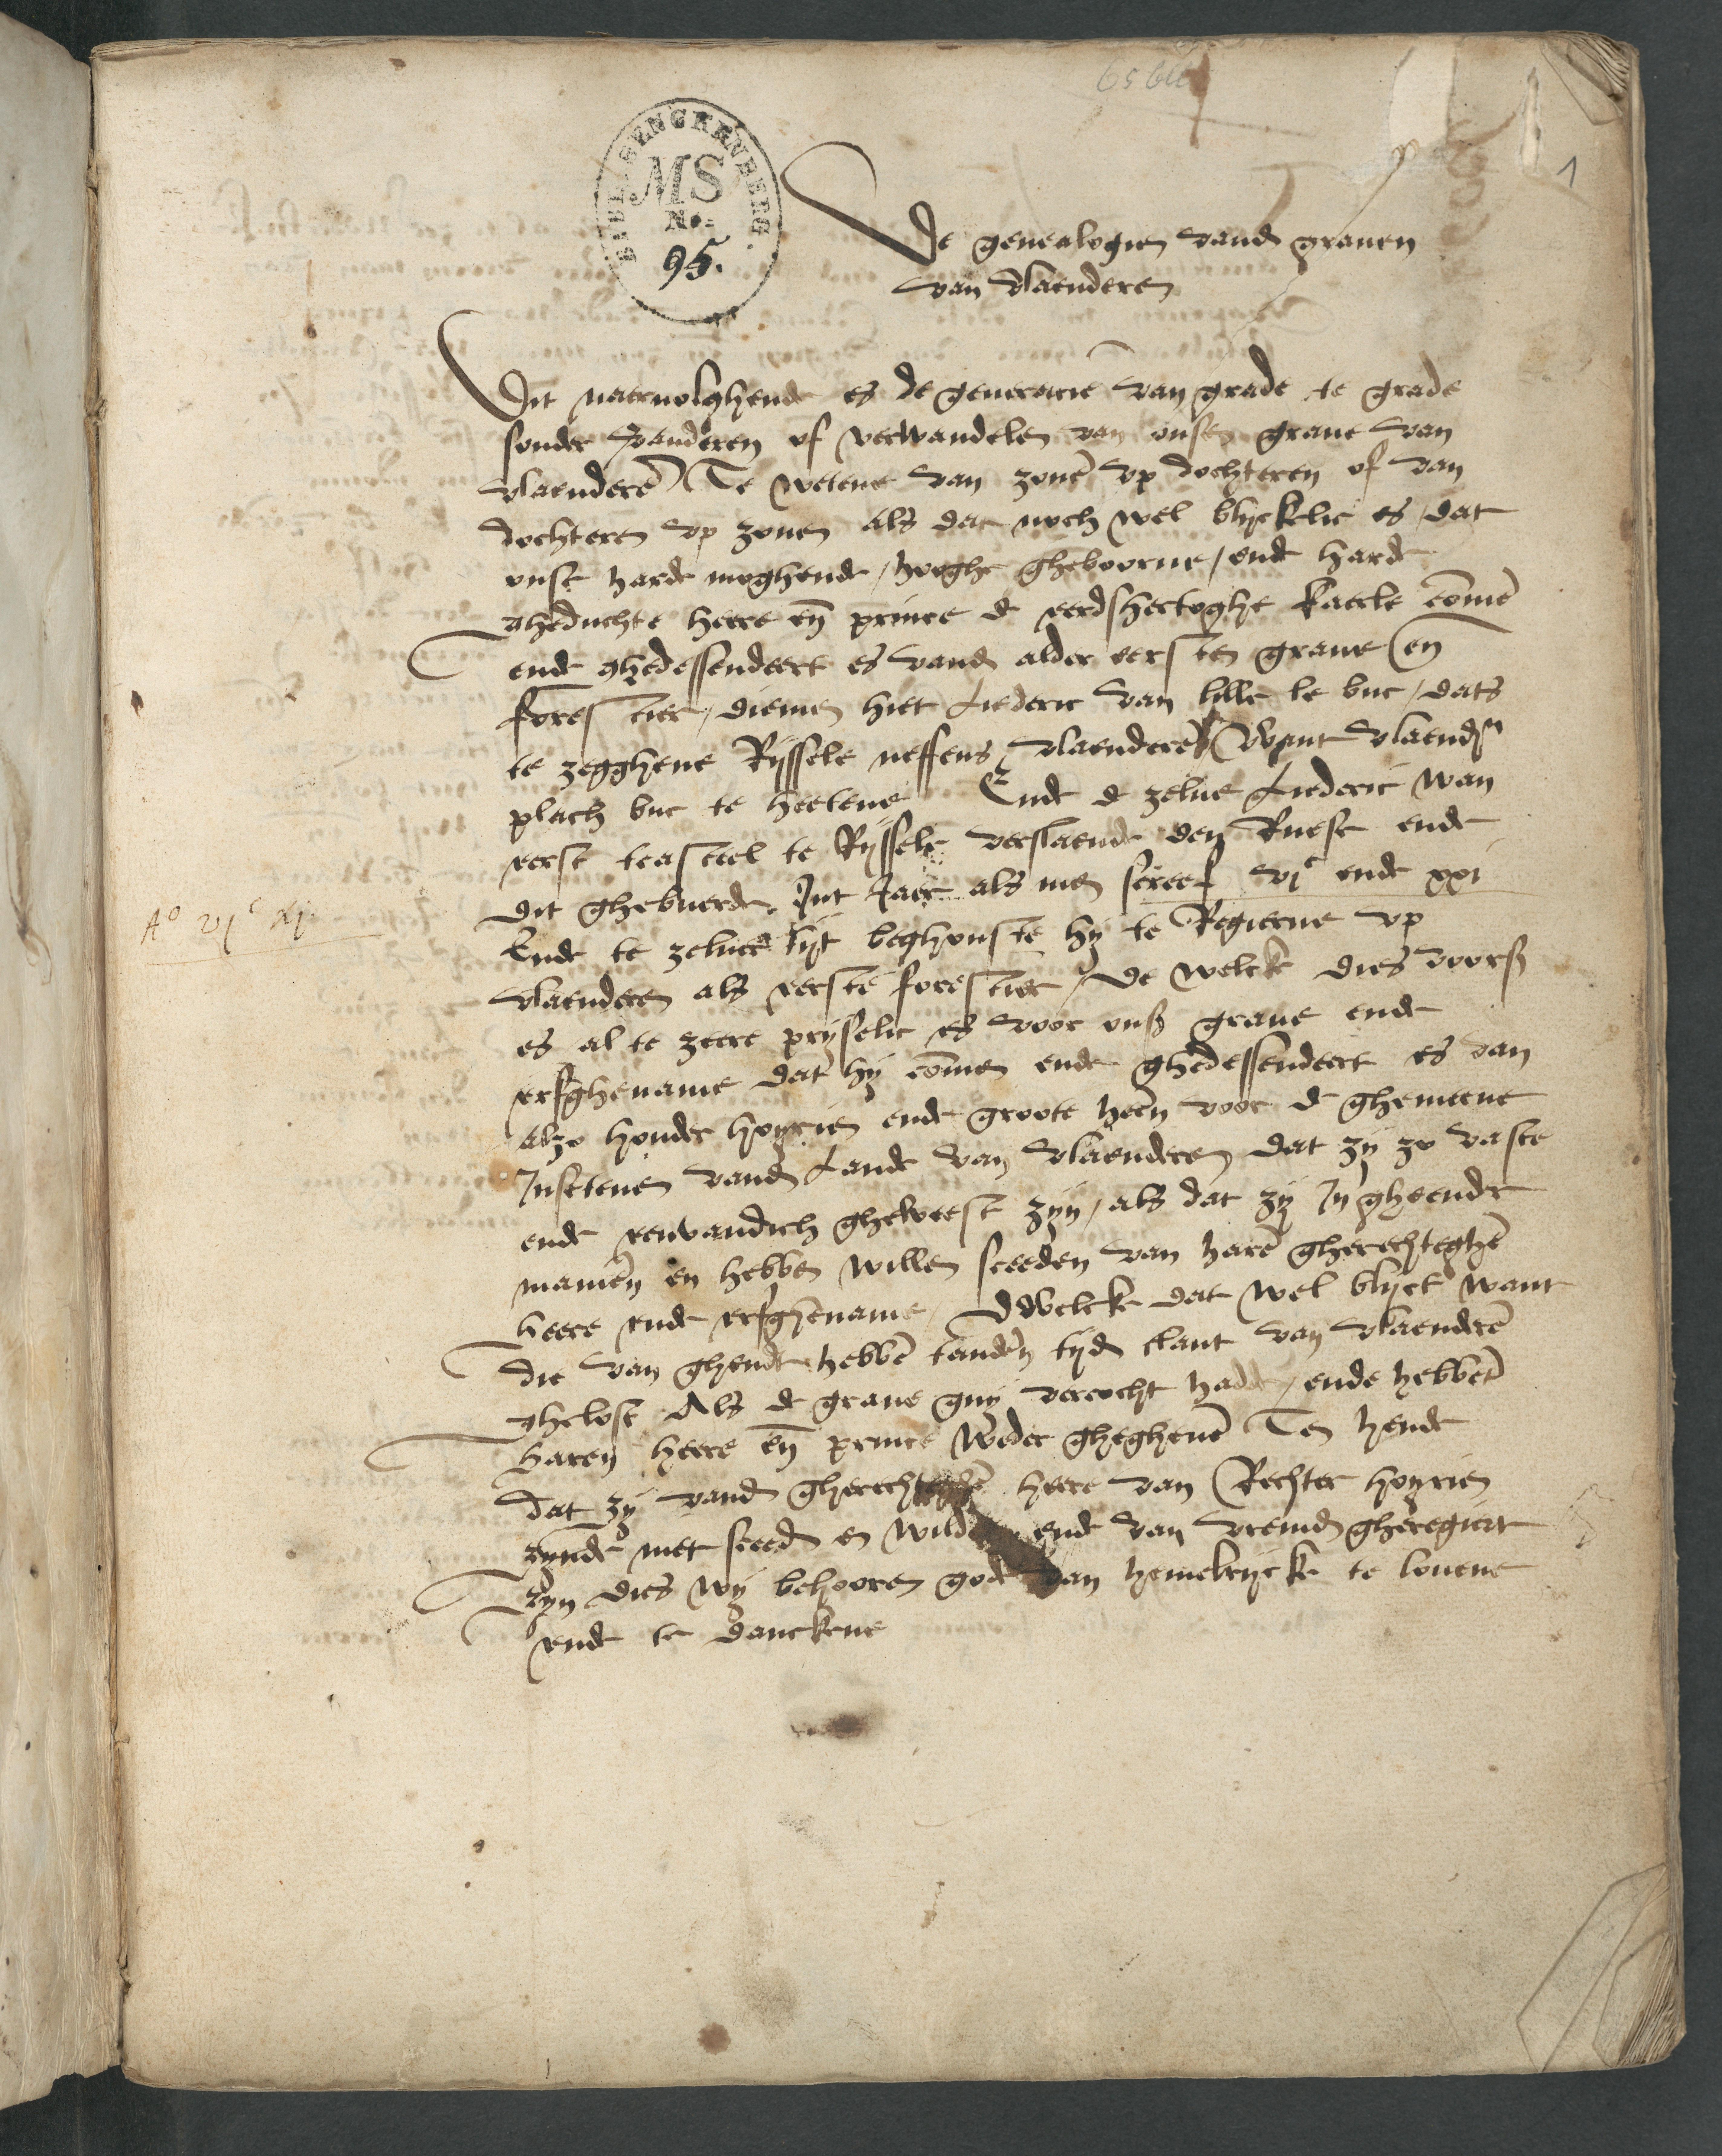 65 bll
1
BIBL. SENCKENBERG.
MS
No.
95.
De genealogien vand grauen
van vlaenderen
Dit naervolghende es de generacie van grade te grade
sonder veranderen of verwandelen van onsen graue van
vlaenderē Te wetene van zonē vp dochteren of van
dochteren vp zonen als dat noch wel blyckelic es / dat
onse harde moghende / hooghe gheboorne / ende harde
gheduchte heere eñ prince d eerdshertoghe kaerle cōmē
ende ghedessendeert es vand alder eersten graue eñ
forestier / diemen hiet Liederic van lille le buc / dats
te zegghene Ryssele neffens vlaenderē want vlaendrn
plach buc te heetene Ende d zelue Liederic wan
eerst tcasteel te Ryssele verslaende den Ruese ende
dit ghebuerde Int Jaer als men screef vjc ende xxi
Ao vjc xxj
Ende te zeluer tijt beghonste hy te Regierne vp
vlaenderen als eerste forestier / De welcke dies voors
es al te zeere pryselic es voor ons graue ende
erfghename dat hy cōmen ende ghedessendeert es van
alzo houder hoyrien ende groote heeñ voor d ghemeene
Insetenen vand Lande van vlaenderen dat zy zo vaste
ende eenvandich gheweest zyn / als dat zy In gheende
manieñ en hebben willen sceeden van harē gherechteghē
heere ende erfghename / Dwelcke dat wel blyct want
die van ghendt hebbē tandeñ tyd tlant van vlaenderē
ghelost Als d graue guy vercocht hadde / ende hebbēt
haren heere eñ prince weder ghegheuē Ten hende
dat zy vand gherechteghē heere van Rechter hoyrien
zynde niet sceed en wilden ende van vremd gheregiert
zyn dies wy behooren gode van hemelrycke te louene
ende te danckene